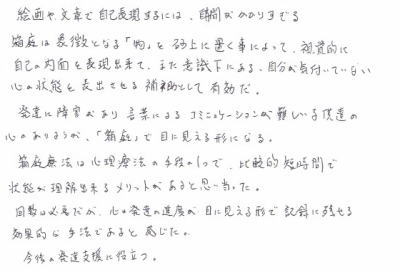 絵画や文章で自己表現するには、時間がかかりすぎる
箱庭は象徴となる「物」を砂上に置く事によって、視覚的に
自己の内面を表現出来て、また意識下にある、自分が気付いていない
心の状態を表出させる補助として有効だ。
発達に障害があり言葉によるコミュニケーションが難しい子供達の
心のありようが、「箱庭」で目に見える形になる。
箱庭療法は心理療法の手段の1つで、比較的短時間で
状態が理解出来るメリットがあると思い当った。
回数は必要だが、心の発達の進度が目に見える形で記録に残せる
効果的な手法であると感じた。
今後の発達支援に役立つ。